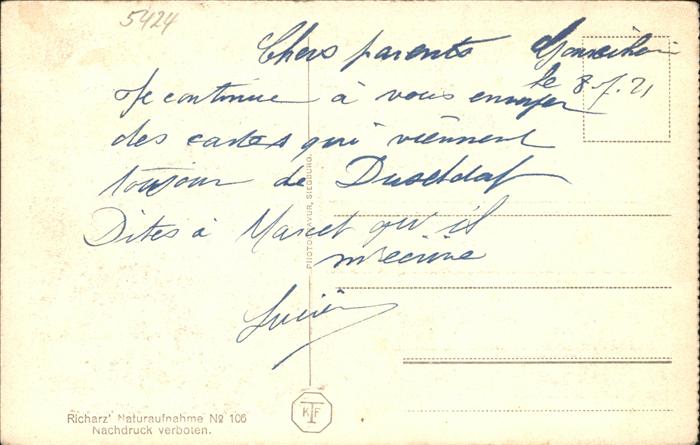 5424
Chers parents
le 8.7.21
Je continue à vous envoyer
des cartes qui viennent
toujour de Dusseldof
Dites à Marcel qu'il
m'écrive
Lucien
PHOTOGRAVUR, SIEGBURG.
Richarz' Naturaufnahme № 106
Nachdruck verboten.
K T F